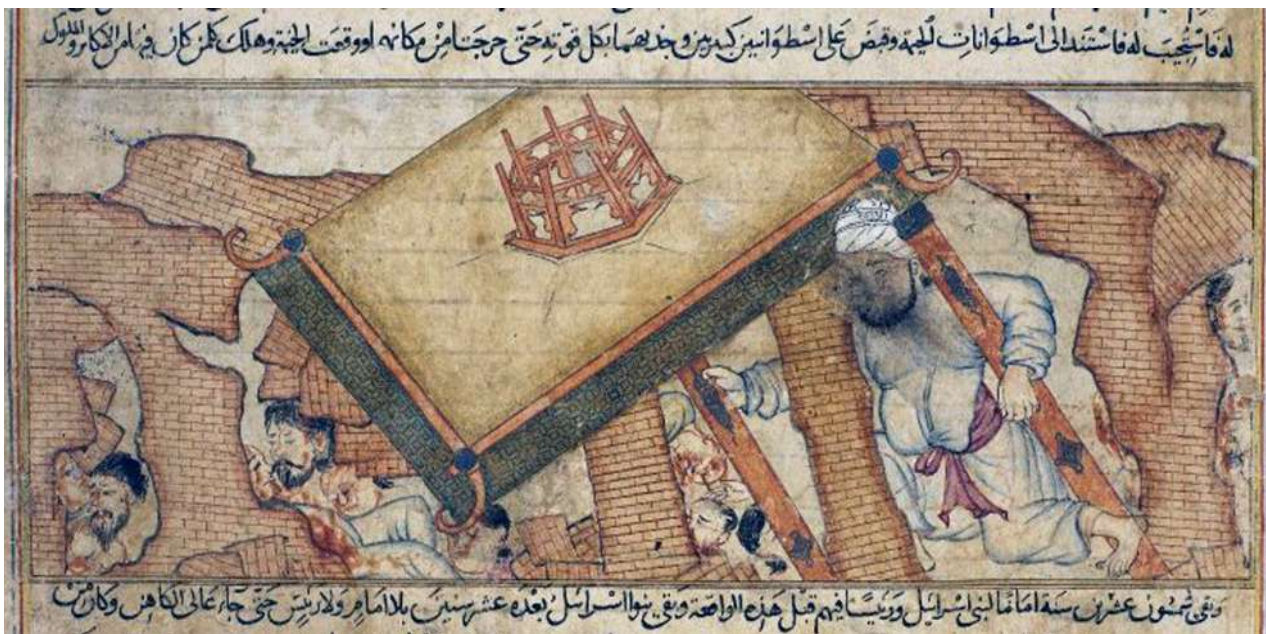 له فاستجيب له فاستند الى اسطوانات الخيمة وقبض على اسطوانتين كبيرتين وجذبهما بكل قوته حتى خرجتا من مكانهما ووقعت الخيمة وهلك كل من كان فيها من الاكابر والملوك
وبقى شمسون عشرين سنة اماما لبني اسرائيل ورئيسا فيهم قبل هذه الواقعة وبقي بنوا اسرائيل بعده عشر سنين بلا امام ولا رئيس حتى جاء عالى الكاهن وكان من